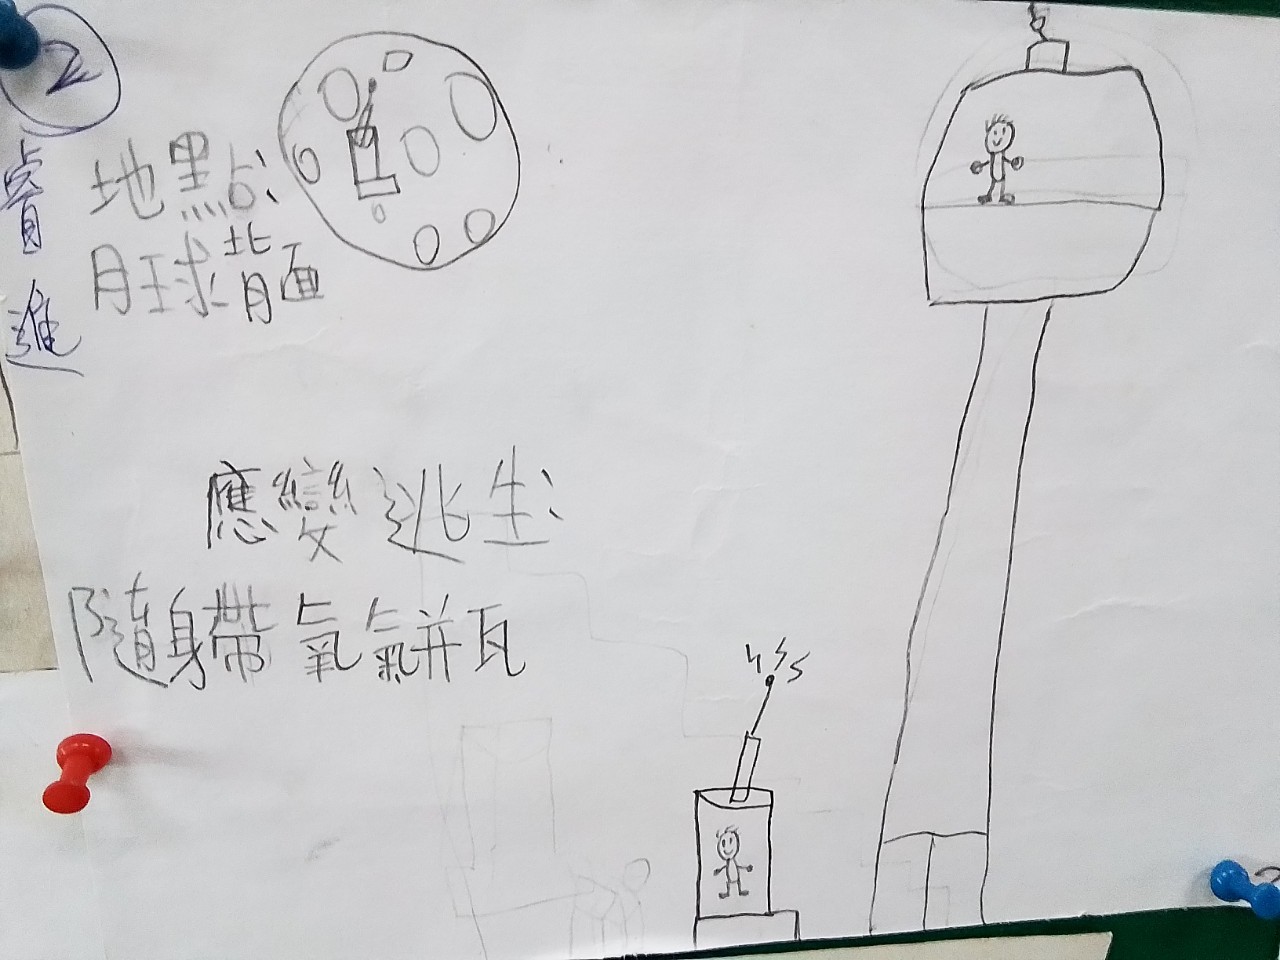 2
睿進
地點:
月球背面
應變逃生:
隨身帶氧氣瓶